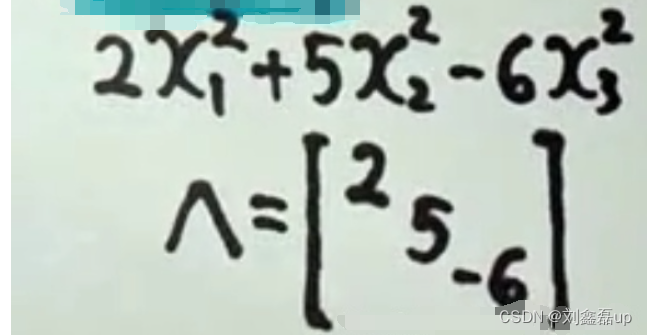 2x₁²+5x₂²-6x₃²
Λ=[2 5 -6]
CSDN @刘鑫磊up